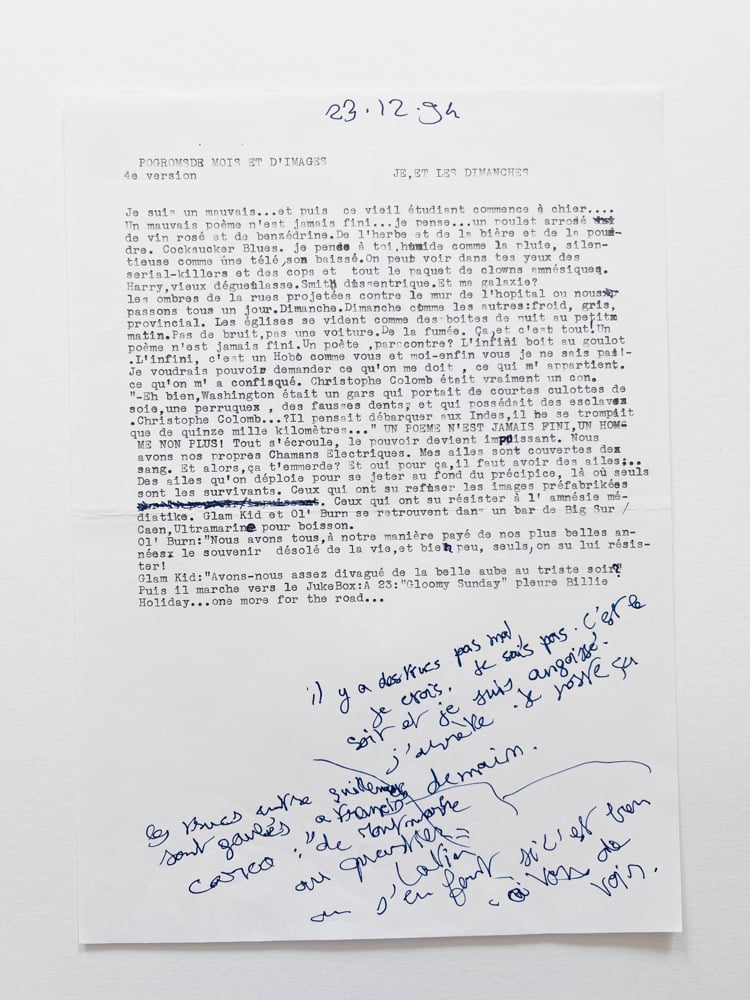 23.12.94
POGROMSDE MOIS ET D'IMAGES
4e version JE,ET LES DIMANCHES
Je suis un mauvais...et puis ce vieil étudiant commence à chier....
Un mauvais poème n'est jamais fini...je pense...un roulet arrosé
de vin rosé et de benzédrine.De l'herbe et de la bière et de la pou-
dre. Cocksucker Blues. je pense à toi,humide comme la pluie, silen-
tieuse comme úne télé,son baissé.On peut voir dans tes yeux des
serial-killers et des cops et tout le paquet de clowns amnésiques.
Harry,vieux déguetlasse.Smith dissentrique.Et ma galaxie?
les ombres de la rues projetées contre le mur de l'hopital ou nous
passons tous un jour.Dimanche.Dimanche comme les autres:froid, gris,
provincial. Les églises se vident comme des boites de nuit au petit
matin.Pas de bruit,pas une voiture.De la fumée. Ça,et c'est tout!Un
poème n'est jamais fini.Un poète ,parcontre? L'infini boit au goulot
.L'infini, c'est un Hobo comme vous et moi-enfin vous je ne sais pas!-
Je voudrais pouvoir demander ce qu'on me doit , ce qui m' appartient.
ce qu'on m' a confisqué. Christophe Colomb était vraiment un con.
"-Eh bien,Washington était un gars qui portait de courtes culottes de
soie,une perruque , des fausses dents; et qui possédait des esclaves
.Christophe Colomb...?Il pensait débarquer aux Indes,il se trompait
que de quinze mille kilomètres..." UN POEME N'EST JAMAIS FINI,UN HOM-
ME NON PLUS! Tout s'écroule, le pouvoir devient impuissant. Nous
avons nos propres Chamans Electriques. Mes ailes sont couvertes de
sang. Et alors,ça t'emmerde? Et oui pour ça,il faut avoir des ailes;..
Des ailes qu'on déploie pour se jeter au fond du précipice, là où seuls
sont les survivants. Ceux qui ont su refuser les images préfabrikées
. Ceux qui ont su résister à l' amnésie mé-
diatike. Glam Kid et Ol' Burn se retrouvent dans un bar de Big Sur /
Caen,Ultramarine pour boisson.
Ol' Burn:"Nous avons tous,à notre manière payé de nos plus belles an-
nées: le souvenir désolé de la vie,et bien peu, seuls,on su lui résis-
ter!
Glam Kid:"Avons-nous assez divagué de la belle aube au triste soir?
Puis il marche vers le JukeBox:A 23:"Gloomy Sunday" pleure Billie
Holiday...one more for the road...
il y a des trucs pas mal
je crois. Je sais pas. C'est le
soir et je suis angoissé.
j'arrête. Je poste ça
demain.
les trucs entre guillemets
sont à Francis
Carco : "de Montmartre
au quartier
Latin"
on s'en fout si c'est bien
à vous de
voir.